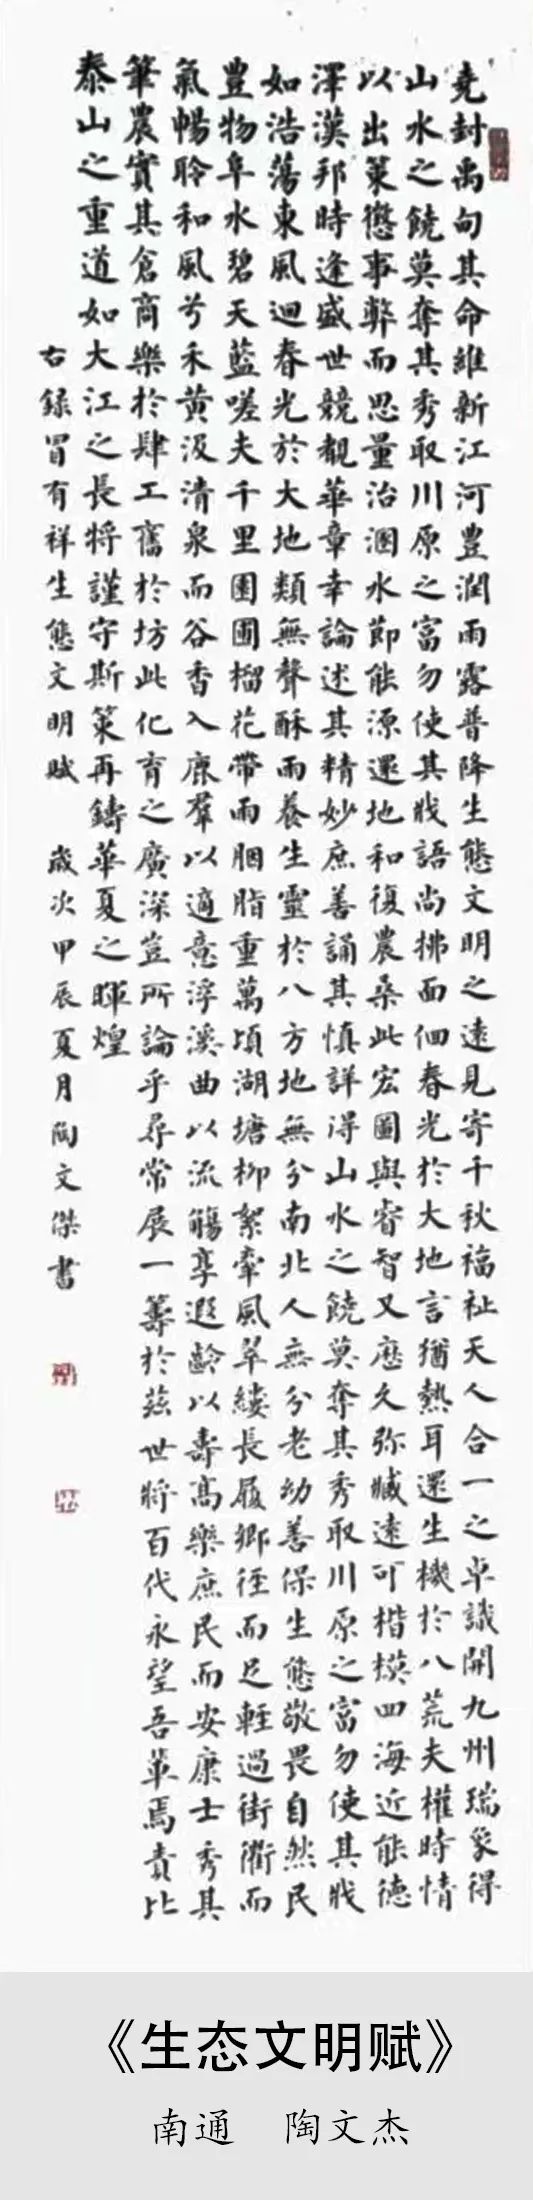 堯封禹甸其命維新江河豊潤雨露普降生態文明之遠見寄千秋福祉天人合一之卓識開九州瑞象得
山水之饒莫奪其秀取川原之富勿使其戕語尚拂面佪春光於大地言猶熱耳還生機於八荒夫權時情
以出策懲事弊而思量治溷水節能源還地和復農桑此宏圖與睿智又歷久弥臧遠可楷模四海近能德
澤漢邦時逢盛世競覩華章幸論述其精妙庶善誦其慎詳得山水之饒莫奪其秀取川原之富勿使其戕
如浩蕩東風迴春光於大地類無聲酥雨養生靈於八方地無分南北人無分老幼善保生態敬畏自然民
豊物阜水碧天藍嗟夫千里園圃榴花帶雨胭脂重萬頃湖塘柳絮牽風翠縷長履鄉徑而足輕過街衢而
氣暢聆和風兮禾黄汲清泉而谷香入鹿羣以適意浮溪曲以流觴享遐齡以壽高樂庶民而安康士秀其
筆農實其倉商樂於肆工舊於坊此化育之廣深豈所論乎尋常展一籌於茲世將百代永望吾輩焉責比
泰山之重道如大江之長將謹守斯策再鑄華夏之暉煌
右錄冒有祥生態文明賦 歲次甲辰夏月陶文傑書
《生态文明赋》
南通 陶文杰